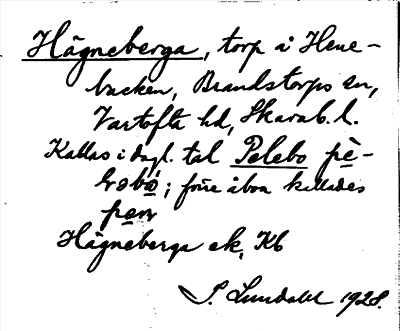 Hägneberga, torp å Hene-
backen, Brandstorps sn,
Vartofta hd, Skarab. l.
Kallas i dagl. tal Pelebo pè-
ləbó; förre åbon kallades
Hägneberga ek, Kb
P. Lundahl 1928.